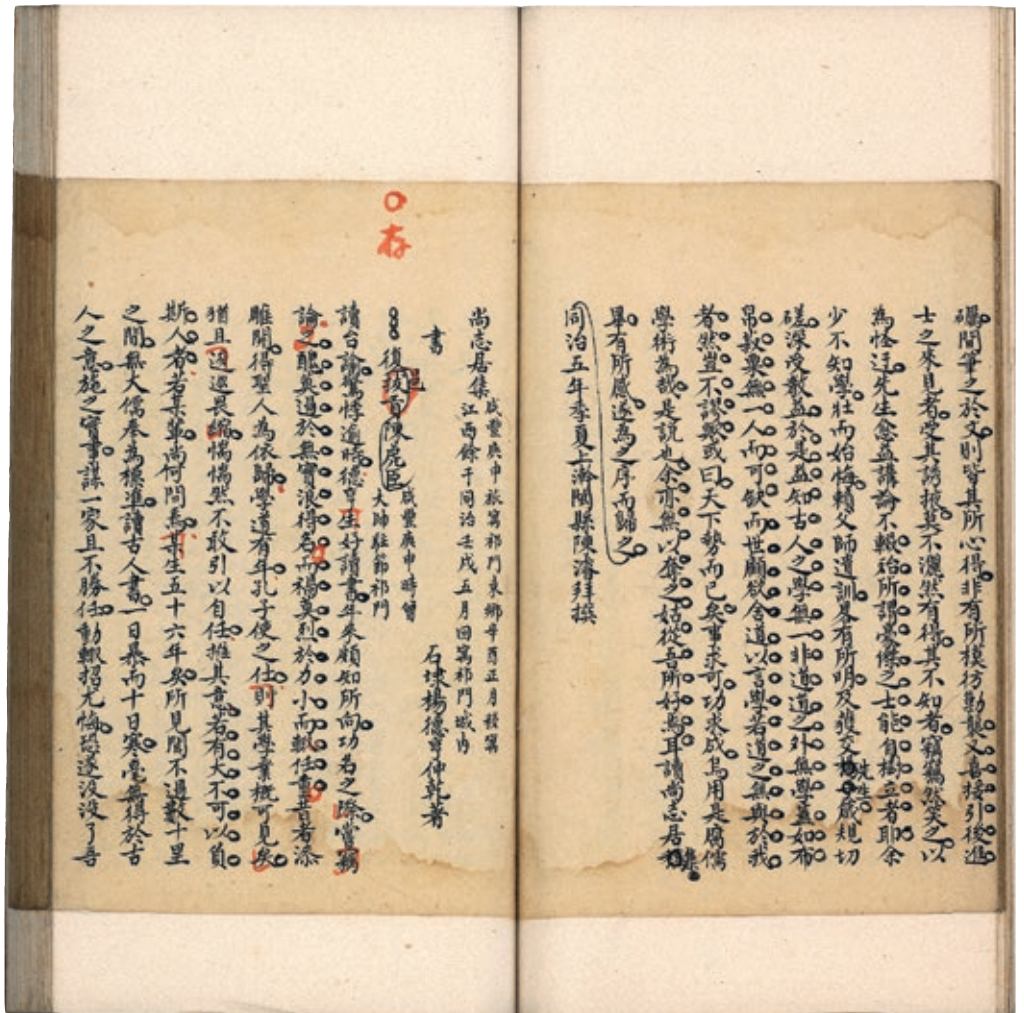 礪間筆之於文則皆其所心得非有所模彷勦襲又喜接引後進
士之來見者受其誘掖莫不灑然有得其不知者竊竊然笑之以
為怪迂先生愈益講論不輟殆所謂豪傑之士能自樹立者耶余
少不知學壯而始悔賴父師遺訓畧有所明及獲交先生箴規切
磋深受教益於是益知古人之學無一非道道之外無學蓋如布
帛菽粟無一人而可缺而世顧欲舍道以言學若道之無與於我
者然豈不謬歟或曰天下勢而已矣事求可功求成烏用是腐儒
學術為哉是說也余亦無以奪之姑從吾所好焉耳讀尚志居集
畢有所感遂為之序而歸之
同治五年季夏上澣閩縣陳濬拜撰
尚志居集 咸豐庚申旅寓祁門東鄉辛酉正月移寓
江西餘干同治壬戌五月回寓祁門城內
書
石埭楊德亨仲乾著
復邑陳虎臣 咸豐庚申時曾
大帥駐節祁門
讀台諭驚悸逾時德亨生好讀書年來頗知所向功名之際嘗竊
論之醜莫過於無實浪得名而禍莫烈於力小而輒任重昔者漆
雕開得聖人為依歸學道有年孔子使之仕則其學業概可見矣
猶且逡巡畏縮惴惴然不敢引以自任推其意若有大不可以負
斯人者若某輩尚何問焉某生五十六年矣所見聞不過數十里
之間無大儒奉為標準讀古人書一日暴而十日寒毫無得於古
人之意施之實事謀一家且不勝任動輒招尤悔恐遂沒沒了吾
○存